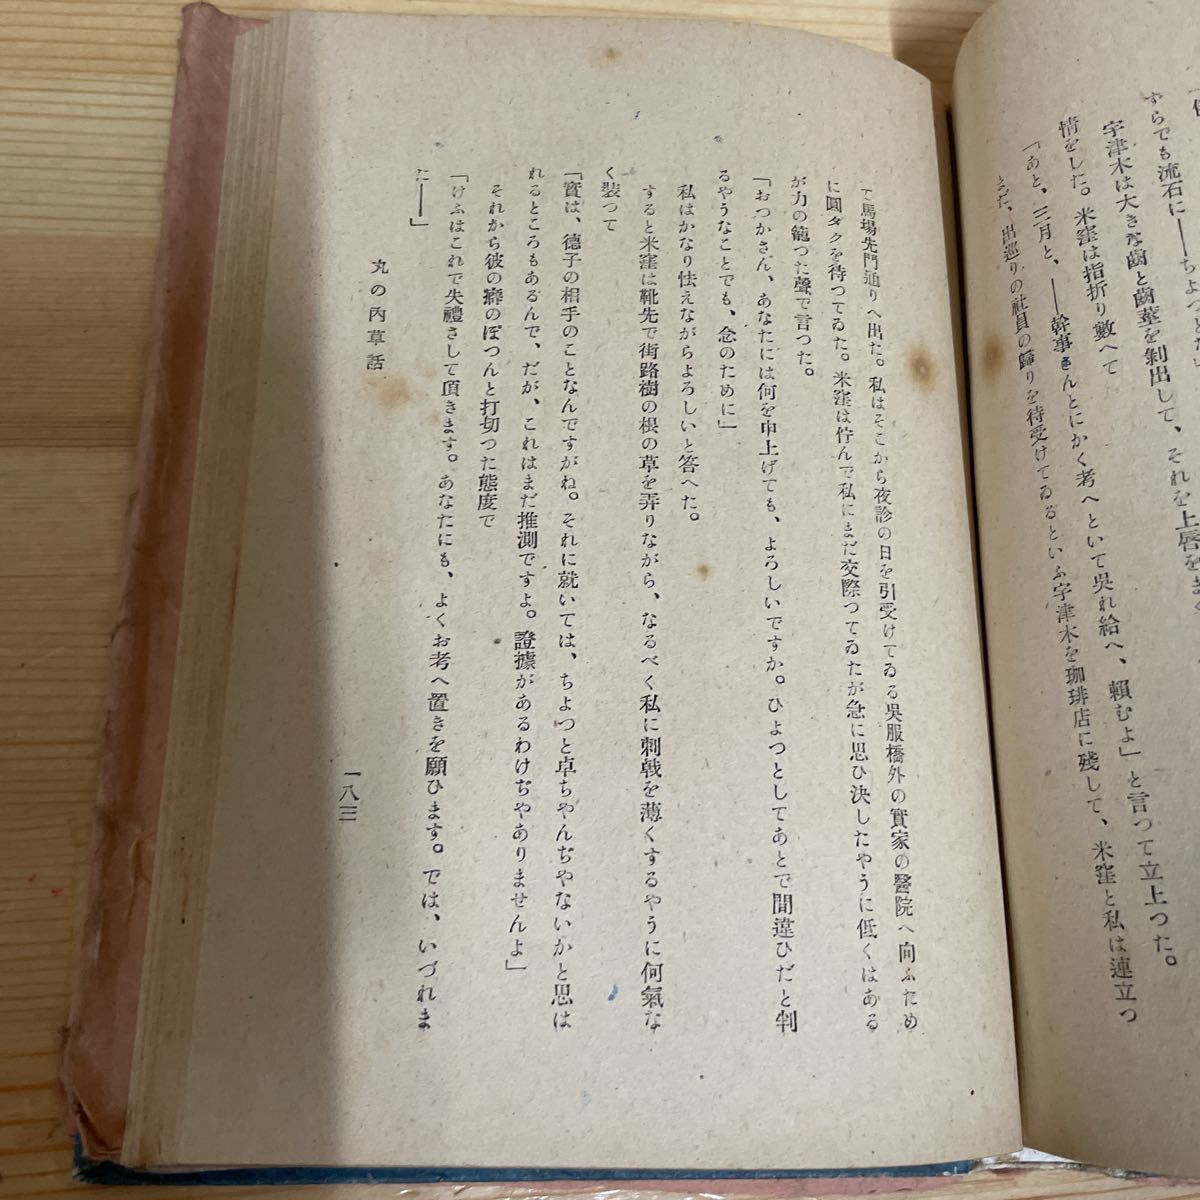 ずらでも流石に――ちよつ
宇津木は大きな齒と齒莖を剝出して、それを上唇を
情をした。米窪は指折り數へて
「あと、三月と、――幹事さんとにかく考へといて吳れ給へ、賴むよ」と言つて立上つた。
出巡りの社員の歸りを待受けてゐるといふ宇津木を珈琲店に殘して、米窪と私は連立つ
て馬場先門通りへ出た。私はそこから夜診の日を引受けてゐる吳服橋外の實家の醫院へ向ふため
に圓タクを待つてゐた。米窪は佇んで私にまだ交際つてゐたが急に思ひ決したやうに低くはある
が力の籠つた聲で言つた。
「おつかさん、あなたには何を申上げても、よろしいですか。ひよつとしてあとで間違ひだと判
るやうなことでも、念のために」
私はかなり怯えながらよろしいと答へた。
すると米窪は靴先で街路樹の根の草を弄りながら、なるべく私に刺戟を薄くするやうに何氣な
く裝つて
「實は、德子の相手のことなんですがね。それに就いては、ちよつと卓ちやんぢやないかと思は
れるところもあるんで、だが、これはまだ推測ですよ。證據があるわけぢやありませんよ」
それから彼の癖のぽつんと打切つた態度で
「けふはこれで失禮さして頂きます。あなたにも、よくお考へ置きを願ひます。では、いづれま
た――」
丸の内草話
一八三